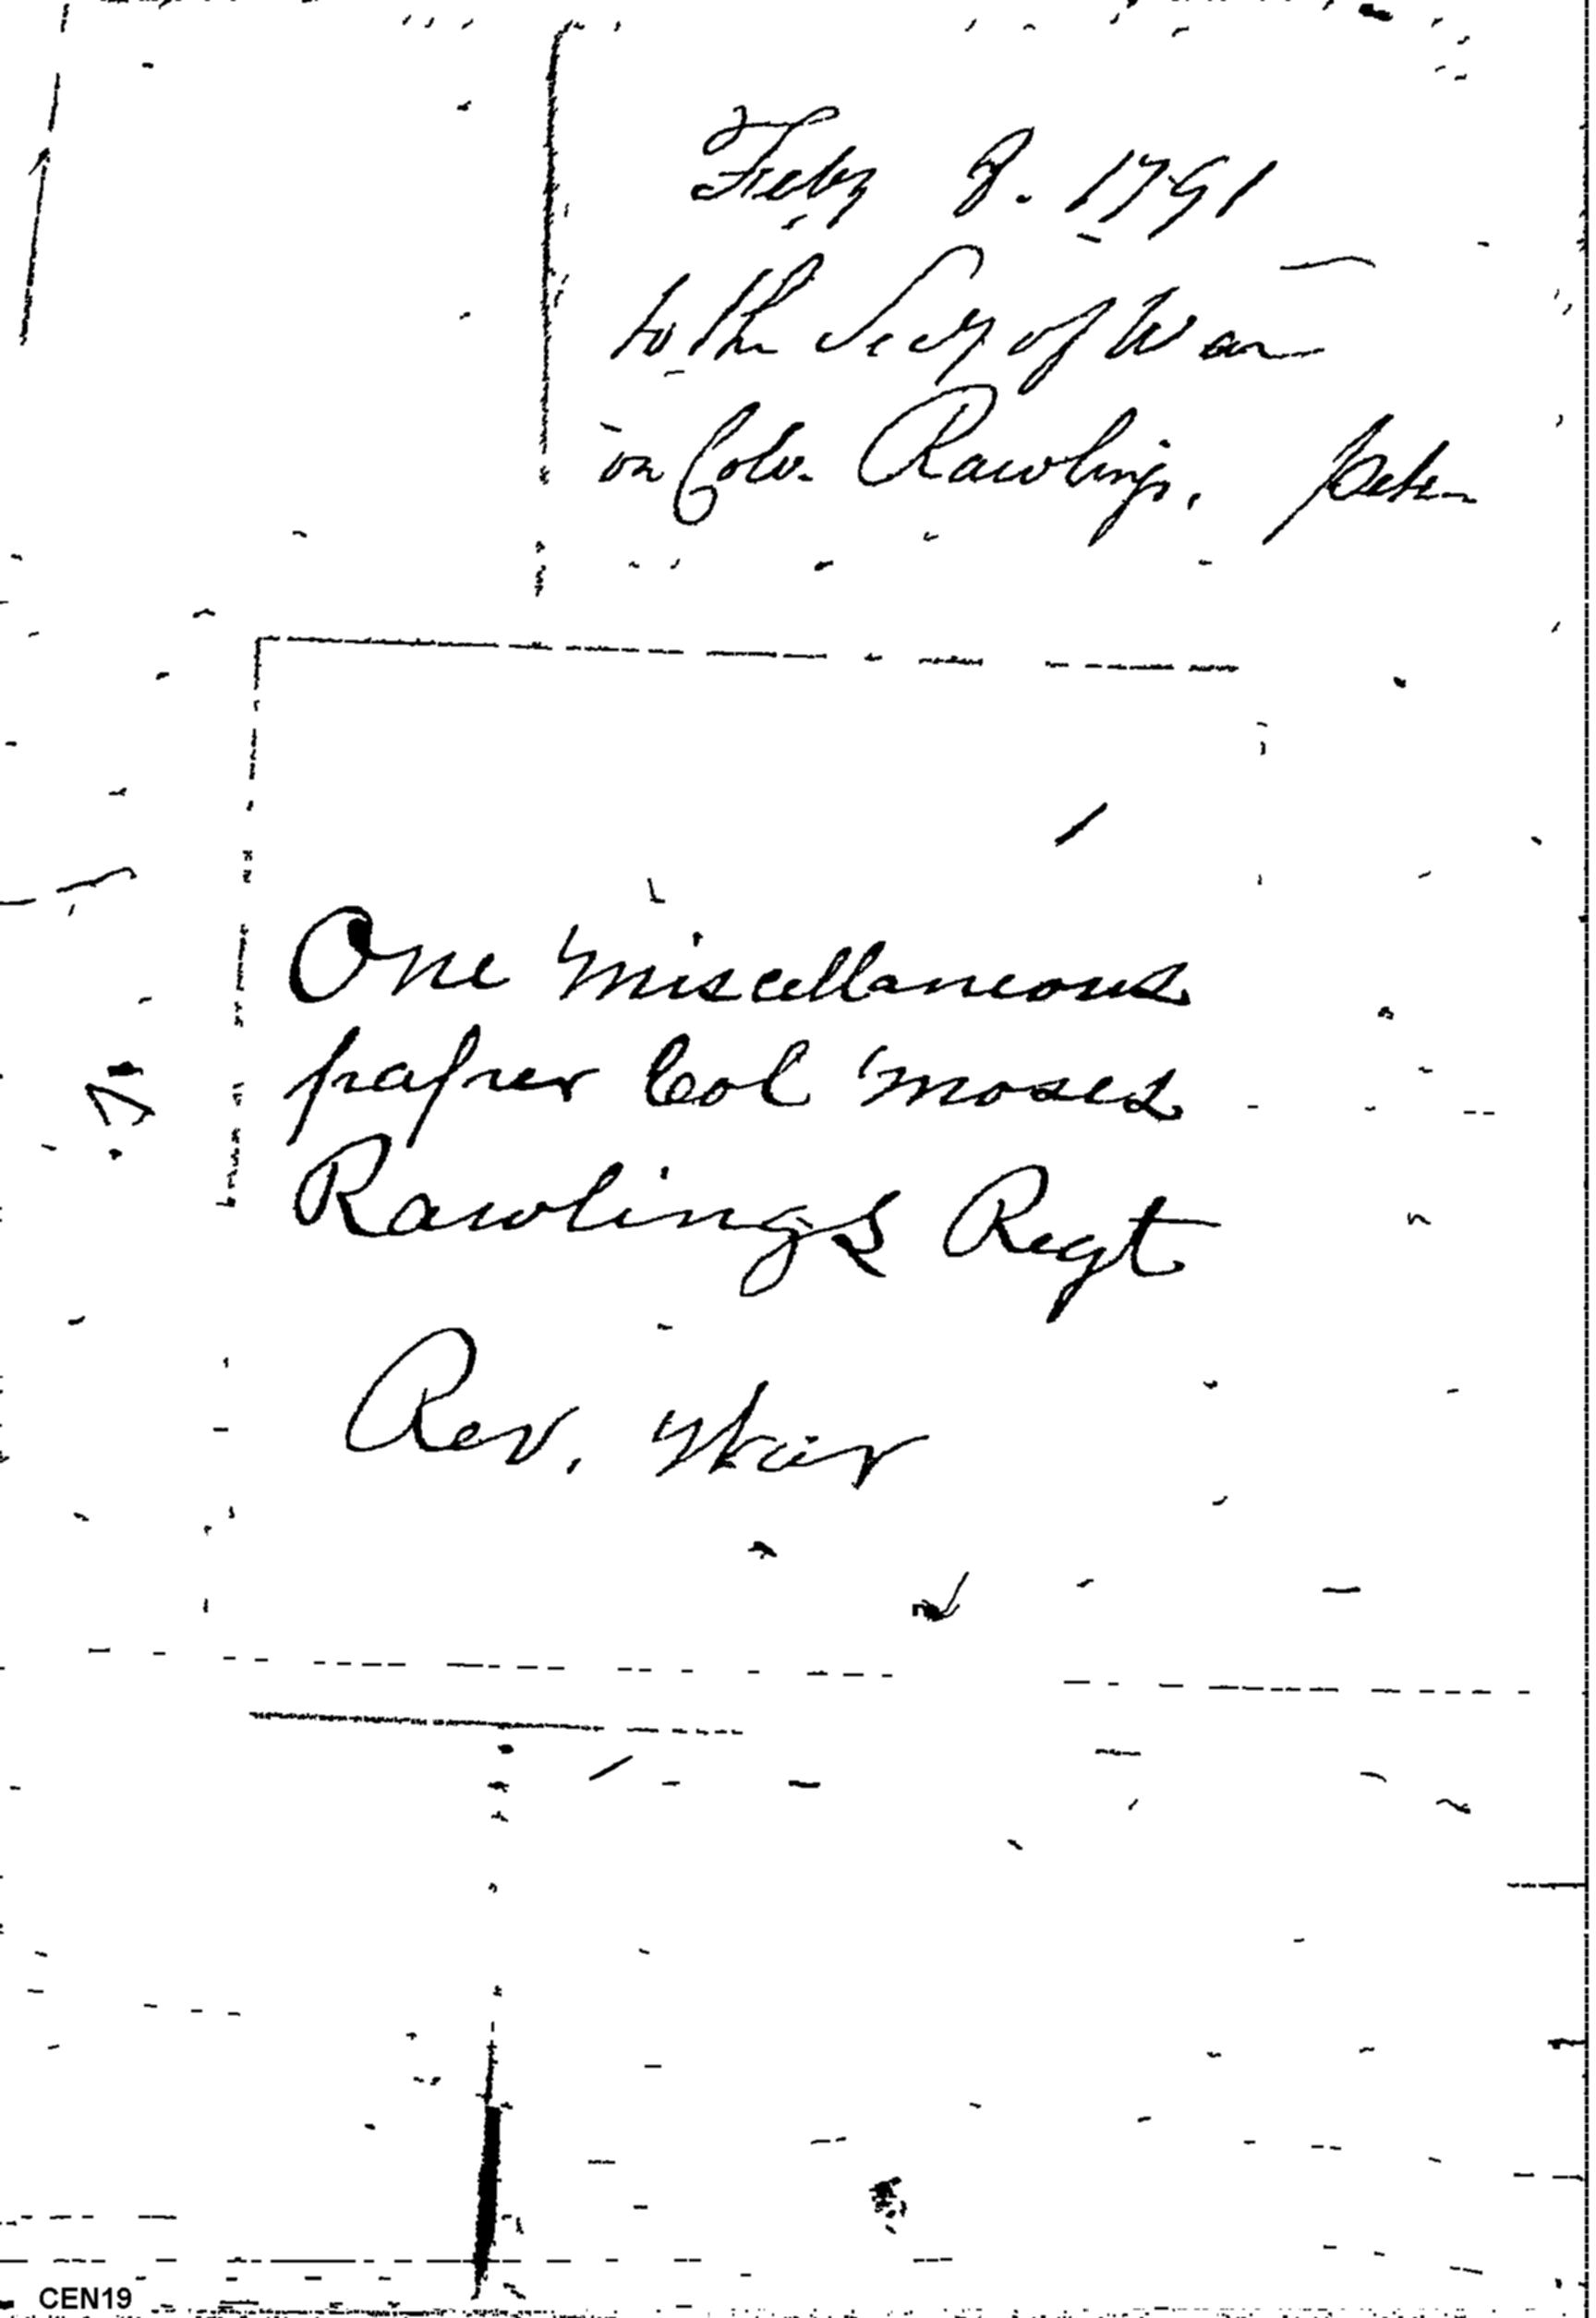 Feby 8. 1791
to the Secy of War
on Colo. Rawlings,
One miscellaneous
paper Col Moses
Rawlings Regt
Rev. War
CEN19